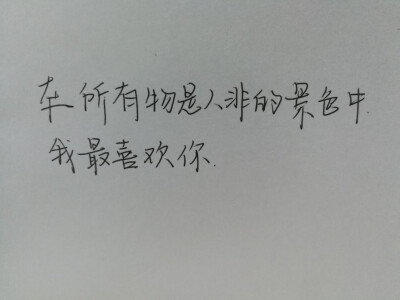 在所有物是人非的景色中.
我最喜欢你.